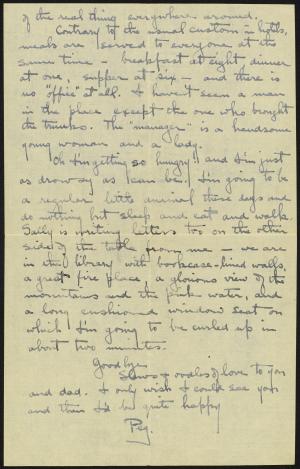 of the real thing everywhere around.
Contrary to the usual custom in hotels,
meals are served to everyone at the
same time – breakfast at eight, dinner
at one, supper at six – and there is
no "office" at all. I haven't seen a man
in the place except the one who brought
the trunks. The "manager" is a handsome
young woman and a lady.
Oh I'm getting so hungry!! and I'm just
as drowsy as can be. I'm going to be
a regular little animal these days and
do nothing but sleep and eat and walk.
Sally is writing letters too on the other
side of the table from me – we are
in the library with bookcase-lined walls,
a great fire place, a glorious view of the
mountains and the pink water, and
a long cushioned window seat on
which I'm going to be curled up in
about two minutes.
Goodbye
oodles of love to you
and dad. I only wish I could see you
and then I'd be quite happy
Peg.